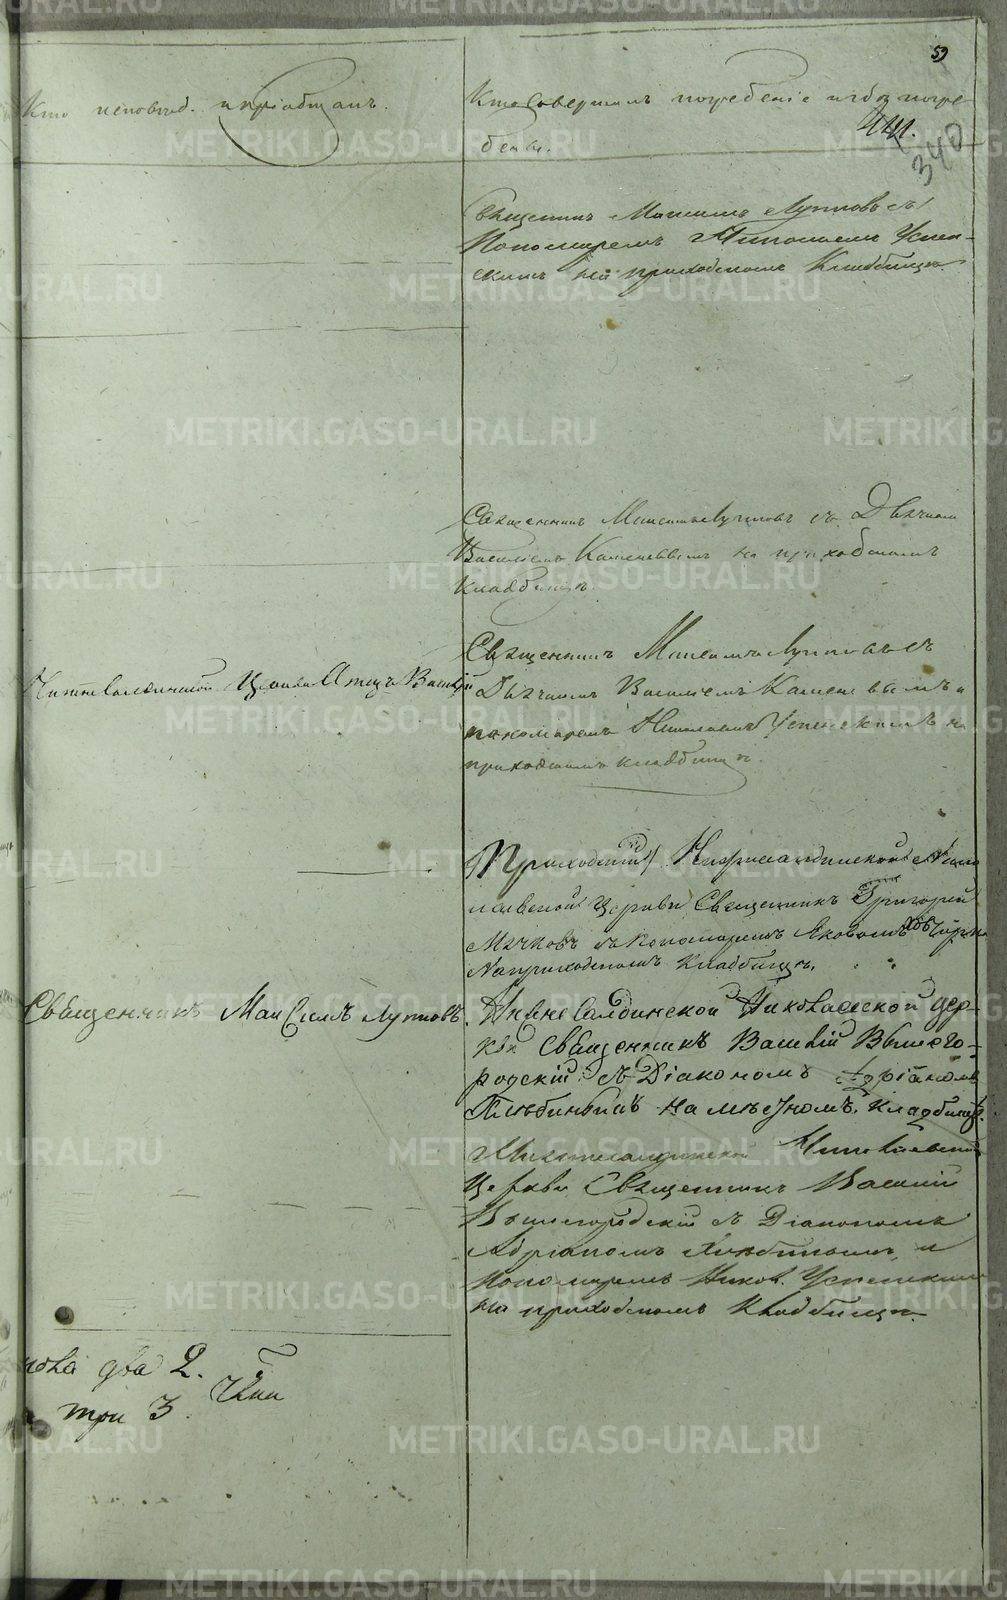 59
Кто исповед. и пріобщалъ.
Кто совершалъ погребеніе и гдѣ погре
бены.
441.
340
Священникъ Максимъ Лупповъ съ
Пономаремъ Николаемъ Успен-
скимъ на приходскомъ Кладбищѣ.
Священникъ Максимъ Лупповъ съ Дьячкомъ
Василіемъ Каменевымъ на приходскомъ
кладбищѣ.
Священникъ Максимъ Лупповъ съ
Дьячкомъ Василіемъ Каменевымъ и
пономаремъ Николаемъ Успенскимъ на
приходскомъ кладбищѣ.
Нижнесалдинской Церкви Отецъ Василій
Приходскій Нижнесалдинской Никола
иевской Церкви Священникъ Григорій
съ пономаремъ Яковомъ
На приходскомъ кладбищѣ.
Священникъ Максимъ Лупповъ.
Нижнесалдинской Николаевской цер-
кви Священникъ Василій Вышего-
родскій съ Діакономъ Адріаномъ
на мѣстномъ кладбищѣ.
Нижнесалдинской Николаевской
Церкви Священникъ Василій
Вышегородскій съ Діакономъ
Адріаномъ и
Пономаремъ Никол. Успенскимъ
на приходскомъ Кладбищѣ.
два 2.
три 3.
METRIKI.GASO-URAL.RU